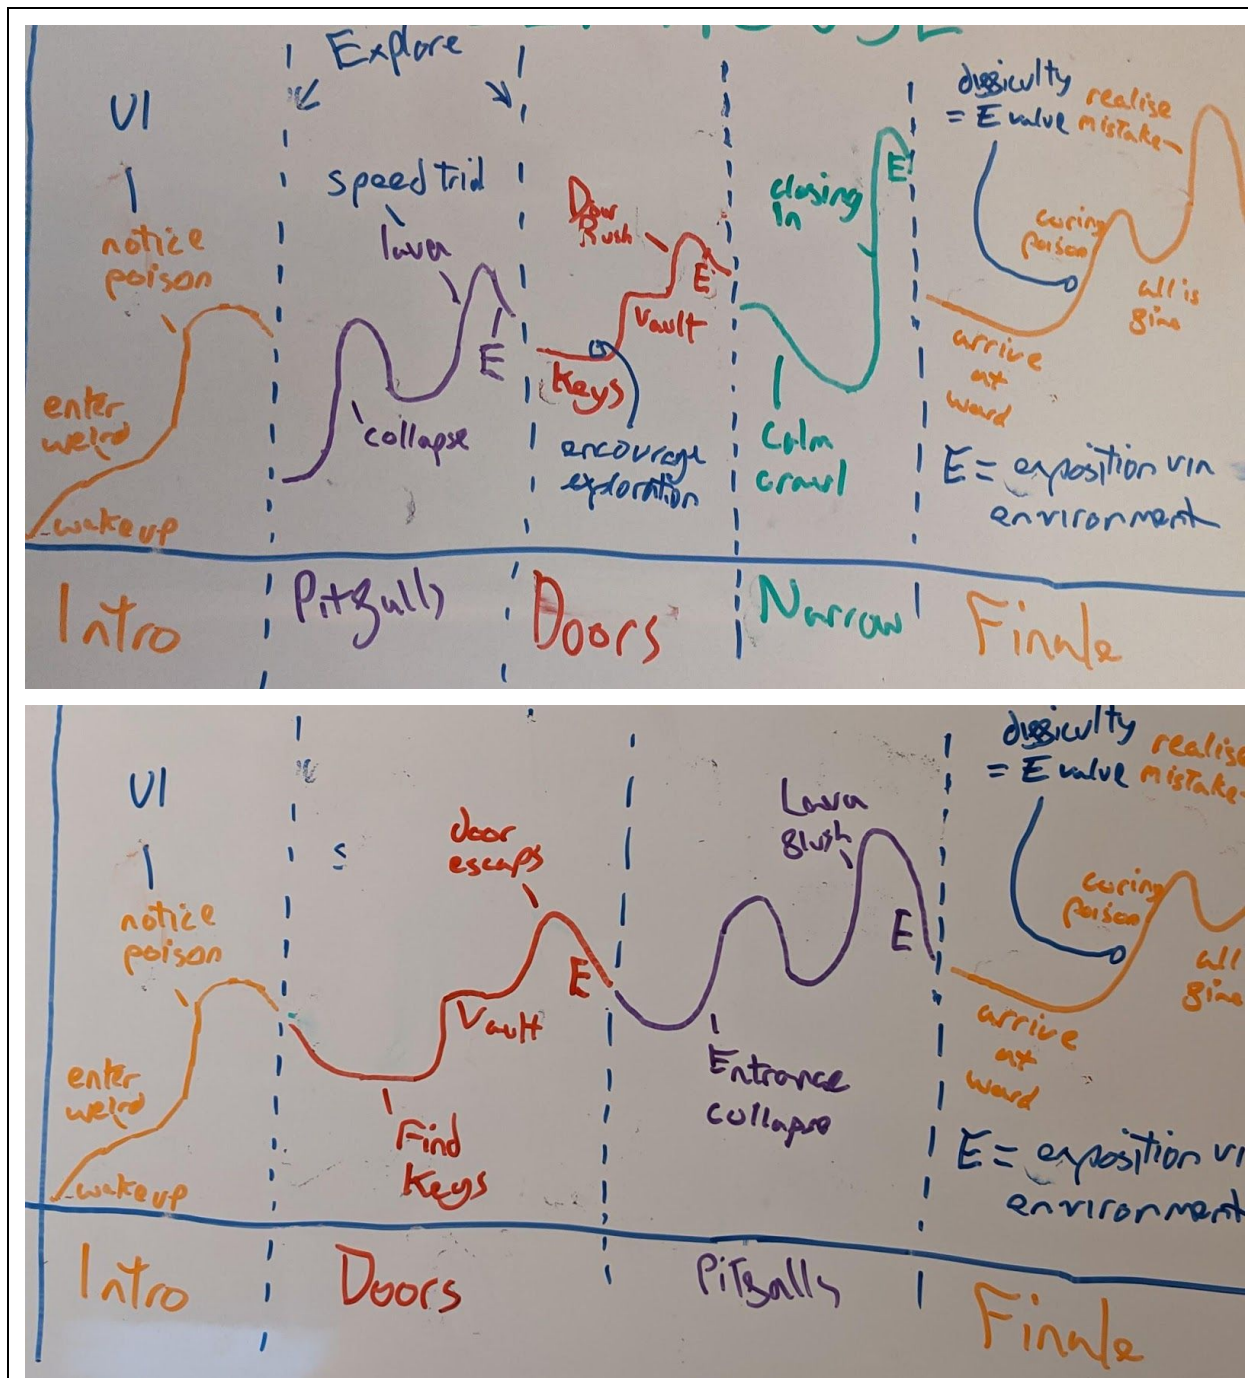 Explore
UI
speed trial
notice
poison
lava
enter
weird
wake up
collapse
E
Door
Rush
E
Vault
Keys
encourage
exploration
closing
In
E
Calm
crawl
difficulty
= E value
realise
mistake
curing
poison
all is
fine
arrive
at
ward
E = exposition via
environment
Intro
Pitfalls
Doors
Narrow
Finale
UI
s
notice
poison
enter
weird
wake up
door
escape
E
Vault
Find
Keys
Lava
flush
E
Entrance
collapse
difficulty
= E value
realise
mistake
curing
poison
all
fine
arrive
at
ward
E = exposition vi
environment
Intro
Doors
Pitfalls
Finale